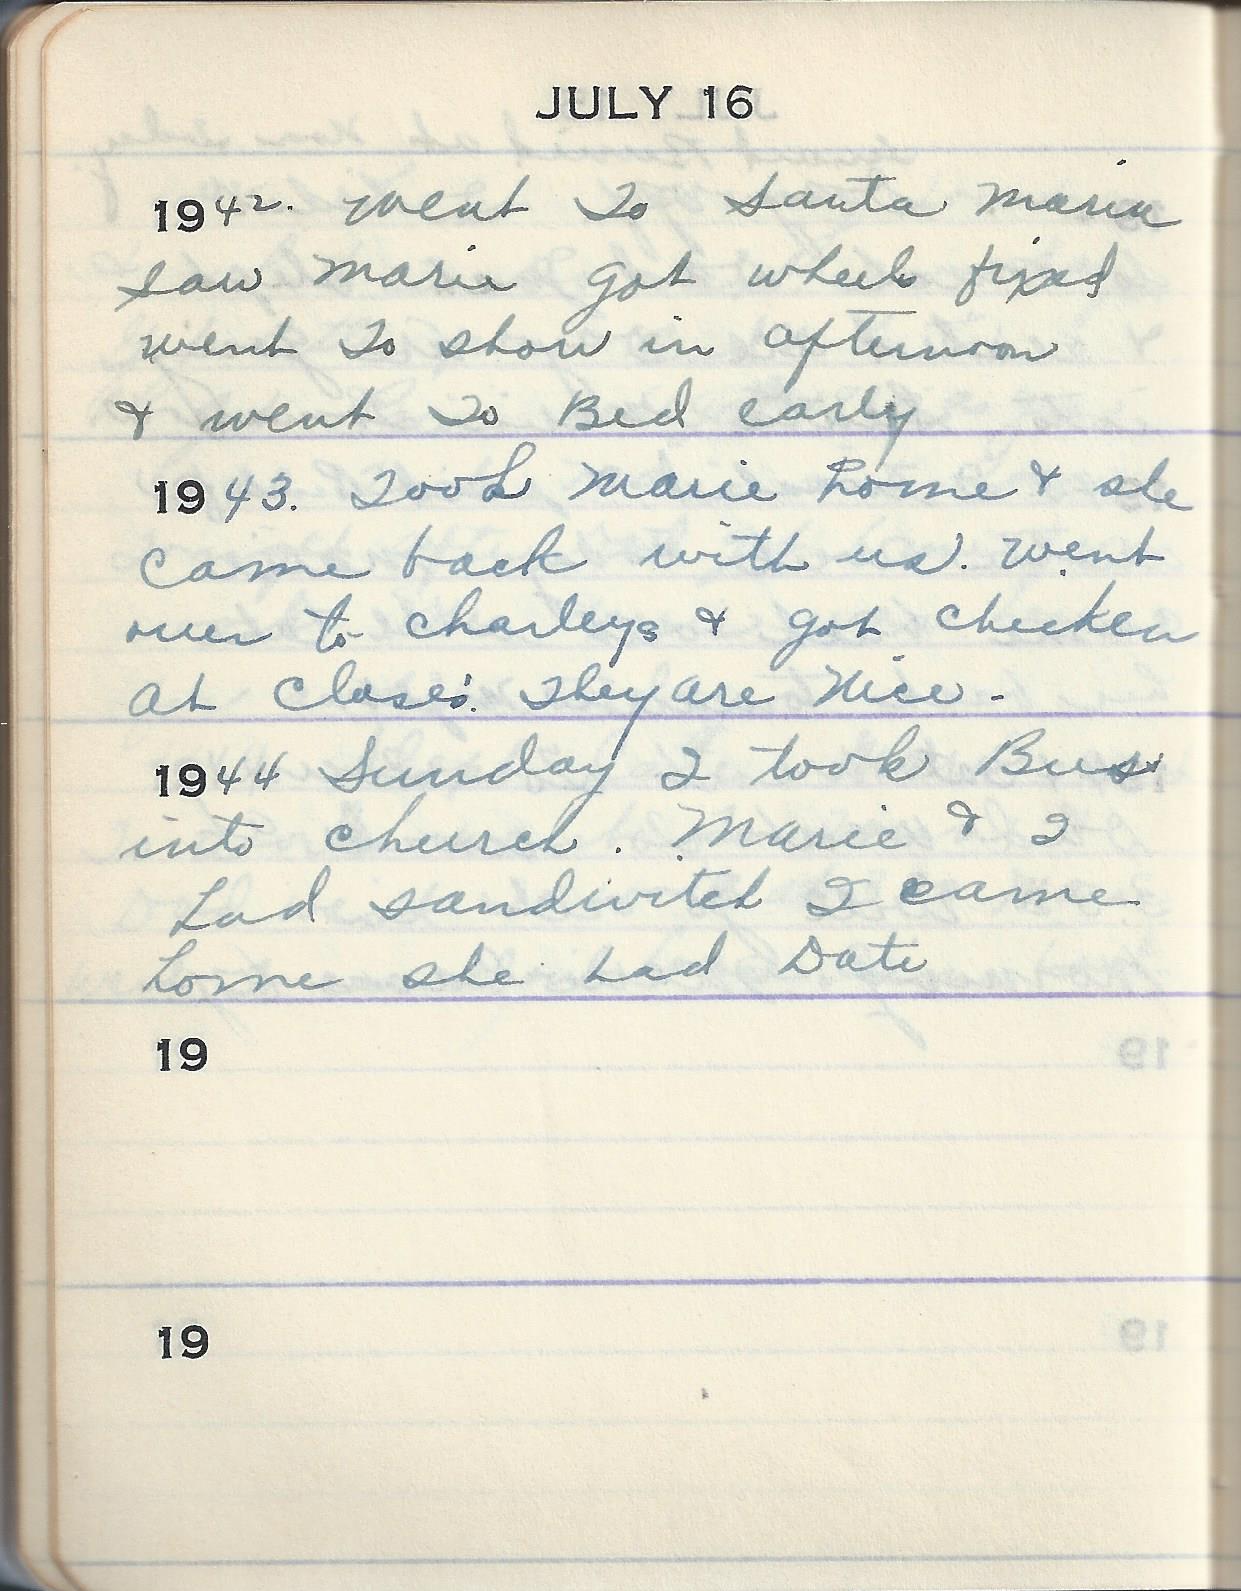 JULY 16
1942. Went To Santa Maria
saw Marie got wheel fixed
went To show in afternoon
& went To Bed early
1943. Took Marie home & she
came back with us. Went
over to Charleys & got chicken
at Closes. They are Nice -
1944 Sunday I took Bus
into church. Marie & I
had sandwitch I came
home she had Date
19
19